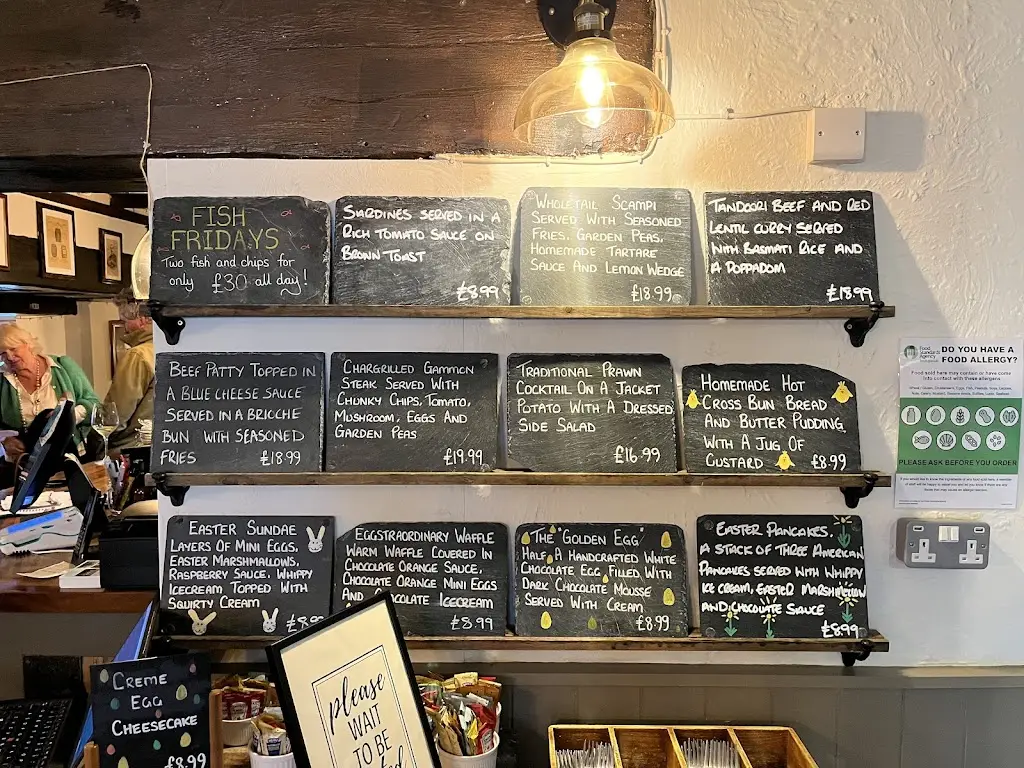 FISH
FRIDAYS
Two fish and chips for
only £30 all day!
SARDINES SERVED IN A
RICH TOMATO SAUCE ON
BROWN TOAST
£8.99
WHOLETAIL SCAMPI
SERVED WITH SEASONED
FRIES, GARDEN PEAS,
HOMEMADE TARTARE
SAUCE AND LEMON WEDGE
£18.99
TANDOORI BEEF AND RED
LENTIL CURRY SERVED
WITH BASMATI RICE AND
A POPPADOM
£18.99
BEEF PATTY TOPPED IN
A BLUE CHEESE SAUCE
SERVED IN A BRICCHE
BUN WITH SEASONED
FRIES £18.99
CHARGRILLED GAMMON
STEAK SERVED WITH
CHUNKY CHIPS, TOMATO,
MUSHROOM, EGGS AND
GARDEN PEAS
£19.99
TRADITIONAL PRAWN
COCKTAIL ON A JACKET
POTATO WITH A DRESSED
SIDE SALAD
£16.99
HOMEMADE HOT
CROSS BUN BREAD
AND BUTTER PUDDING
WITH A JUG OF
CUSTARD £8.99
EASTER SUNDAE
LAYERS OF MINI EGGS,
EASTER MARSHMALLOWS,
RASPBERRY SAUCE, WHIPPY
ICECREAM TOPPED WITH
SQUIRTY CREAM
£8.99
EGGSTRAORDINARY WAFFLE
WARM WAFFLE COVERED IN
CHOCOLATE ORANGE SAUCE,
CHOCOLATE ORANGE MINI EGGS
AND CHOCOLATE ICECREAM
£8.99
THE "GOLDEN EGG"
HALF A HANDCRAFTED WHITE
CHOCOLATE EGG FILLED WITH
DARK CHOCOLATE MOUSSE
SERVED WITH CREAM
£8.99
EASTER PANCAKES.
A STACK OF THREE AMERICAN
PANCAKES SERVED WITH WHIPPY
ICE CREAM, EASTER MARSHMALLOW
AND CHOCOLATE SAUCE
£8.99
CREME
EGG
CHEESECAKE
£8.99
please
WAIT
TO BE
Food
Standards
Agency
DO YOU HAVE A
FOOD ALLERGY?
Food sold here may contain or have come
into contact with these allergens
PLEASE ASK BEFORE YOU ORDER